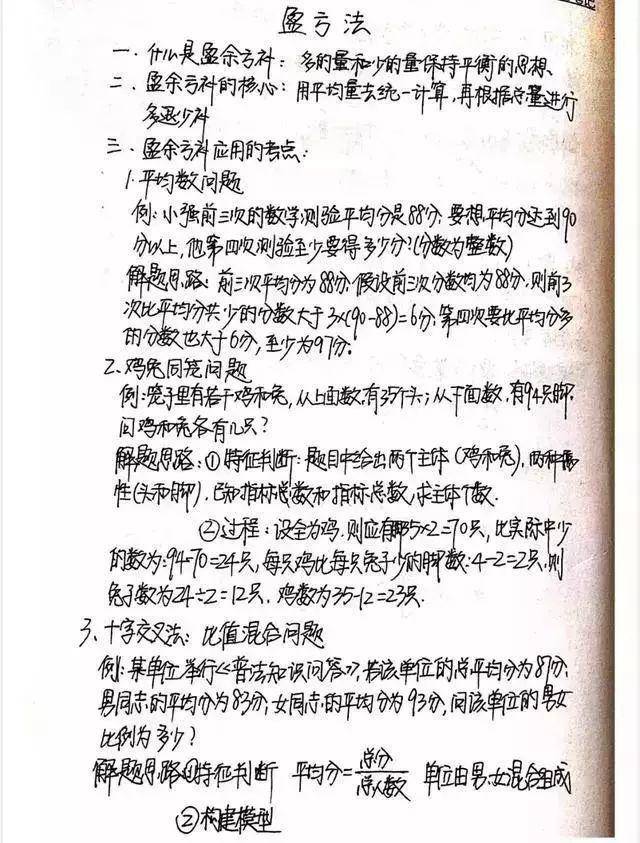 盈亏法
一. 什么是盈余亏补: 多的量和少的量保持平衡的思想.
二. 盈余亏补的核心: 用平均量去统一计算, 再根据总量进行
多退少补
三. 盈余亏补应用的考点:
1.平均数问题
例: 小强前三次的数学测验平均分是88分, 要想平均分达到90
分以上, 他第四次测验至少要得多少分? (分数为整数)
解题思路: 前三次平均分为88分. 假设前三次分数均为88分, 则前3
次比平均分共少的分数大于3×(90-88)=6分; 第四次要比平均分多
的分数也大于6分, 至少为97分.
2.鸡兔同笼问题
例: 笼子里有若干鸡和兔, 从上面数, 有35个头; 从下面数, 有94只脚,
问鸡和兔各有几只?
解题思路: ①特征判断: 题目中给出两个主体 (鸡和兔), 两种属
性(头和脚). 已知指标总数和指标总数, 求主体个数.
②过程: 设全为鸡. 则应有35×2=70只, 比实际中少
的数为: 94-70=24只, 每只鸡比每只兔子少的脚数: 4-2=2只, 则
兔子数为24÷2=12只, 鸡数为35-12=23只.
3. 十字交叉法: 比值混合问题
例: 某单位举行《普法知识问答》, 若该单位的总平均分为87分;
男同志的平均分为83分; 女同志的平均分为93分, 问该单位的男女
比例为多少?
解题思路①特征判断 平均分=总分/总人数 单位由男、女混合组成
②构建模型